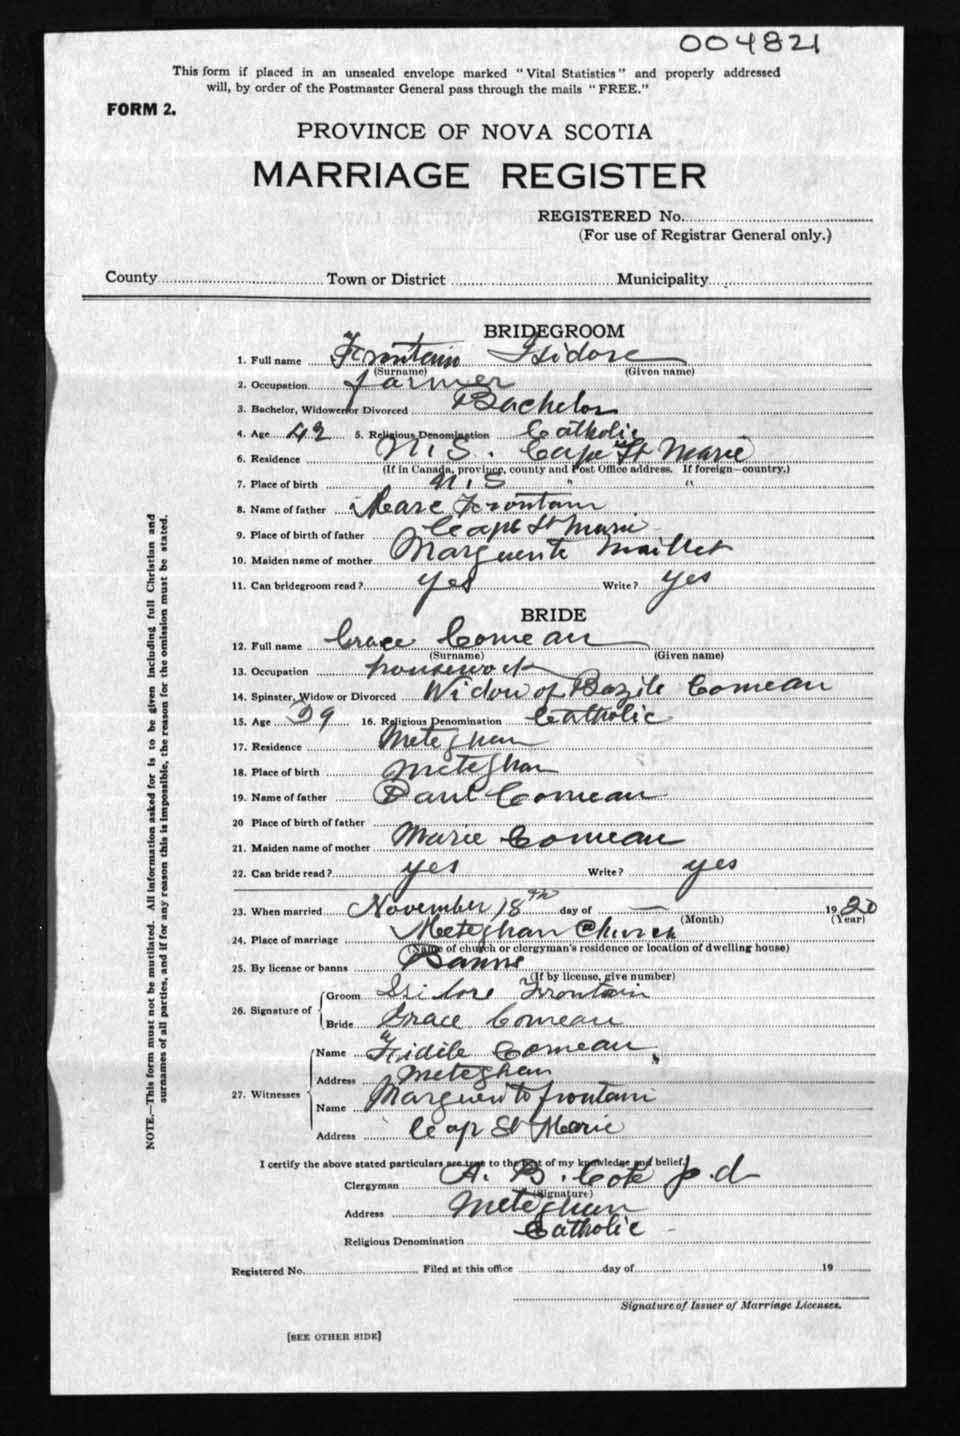 004821
This form if placed in an unsealed envelope marked "Vital Statistics" and properly addressed
will, by order of the Postmaster General pass through the mails "FREE."
FORM 2.
PROVINCE OF NOVA SCOTIA
MARRIAGE REGISTER
REGISTERED No.
(For use of Registrar General only.)
County Town or District Municipality
BRIDEGROOM
1. Full name Frontain Isidore
(Surname) (Given name)
2. Occupation farmer
3. Bachelor, Widower or Divorced Bachelor
4. Age 42 5. Religious Denomination Catholic
6. Residence N.S. Cape St Marie
(If in Canada, province, county and Post Office address. If foreign—country.)
7. Place of birth N.S " "
8. Name of father Marc Frontain
9. Place of birth of father Cape St Marie
10. Maiden name of mother Marguerite Maillet
11. Can bridegroom read? yes Write? yes
BRIDE
12. Full name Grace Comeau
(Surname) (Given name)
13. Occupation housework
14. Spinster, Widow or Divorced Widow of Bazile Comeau
15. Age 29 16. Religious Denomination Catholic
17. Residence Meteghan
18. Place of birth Meteghan
19. Name of father Paul Comeau
20 Place of birth of father
21. Maiden name of mother Marie Comeau
22. Can bride read? yes Write? yes
23. When married November 18th day of — 1920
(Month) (Year)
24. Place of marriage Meteghan Church
(Name of church or clergyman's residence or location of dwelling house)
25. By license or banns Banns
(If by license, give number)
26. Signature of Groom Isidore Frontain
Bride Grace Comeau
27. Witnesses Name Fidile Comeau
Address Meteghan
Name Marguerito frontain
Address Cap St Marie
I certify the above stated particulars are true to the best of my knowledge and belief.
Clergyman A. B. Cote p.d
(Signature)
Address Meteghan
Religious Denomination Catholic
Registered No. Filed at this office day of 19
Signature of Issuer of Marriage Licenses.
[SEE OTHER SIDE]
NOTE.—This form must not be mutilated. All information asked for is to be given including full Christian and
surnames of all parties, and if for any reason this is impossible, the reason for the omission must be stated.